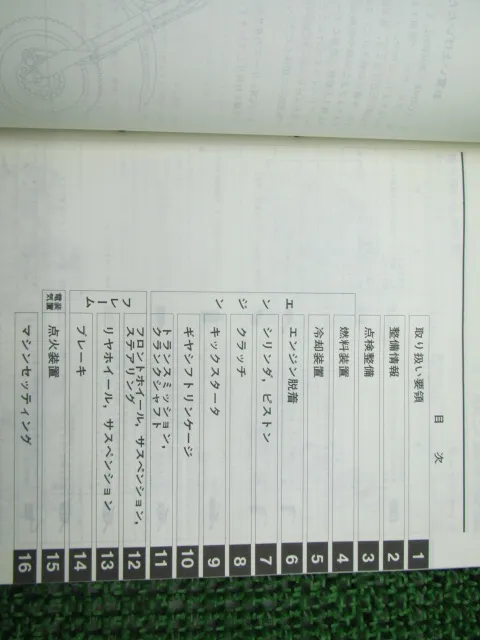 目 次
取り扱い要領 1
整備情報 2
点検整備 3
燃料装置 4
冷却装置 5
エンジン脱着 6
シリンダ，ピストン 7
クラッチ 8
キックスタータ 9
ギヤシフトリンケージ 10
トランスミッション，
クランクシャフト 11
フロントホイール，サスペンション，
ステアリング 12
リヤホイール，サスペンション 13
ブレーキ 14
点火装置 15
マシンセッティング 16
エンジン
フレーム
電装
気置